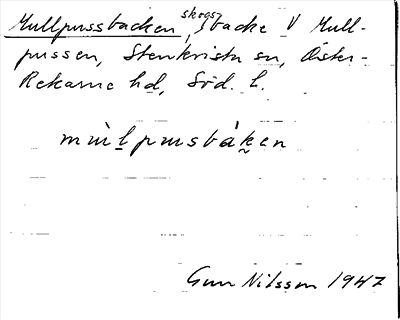 Mullpussbacken, skogsbacke V Mull-
pussen, Stenkvista sn, Öster-
Rekarne hd, Söd. l.
mùl̲pusbàk̬en
Gun Nilsson 1947